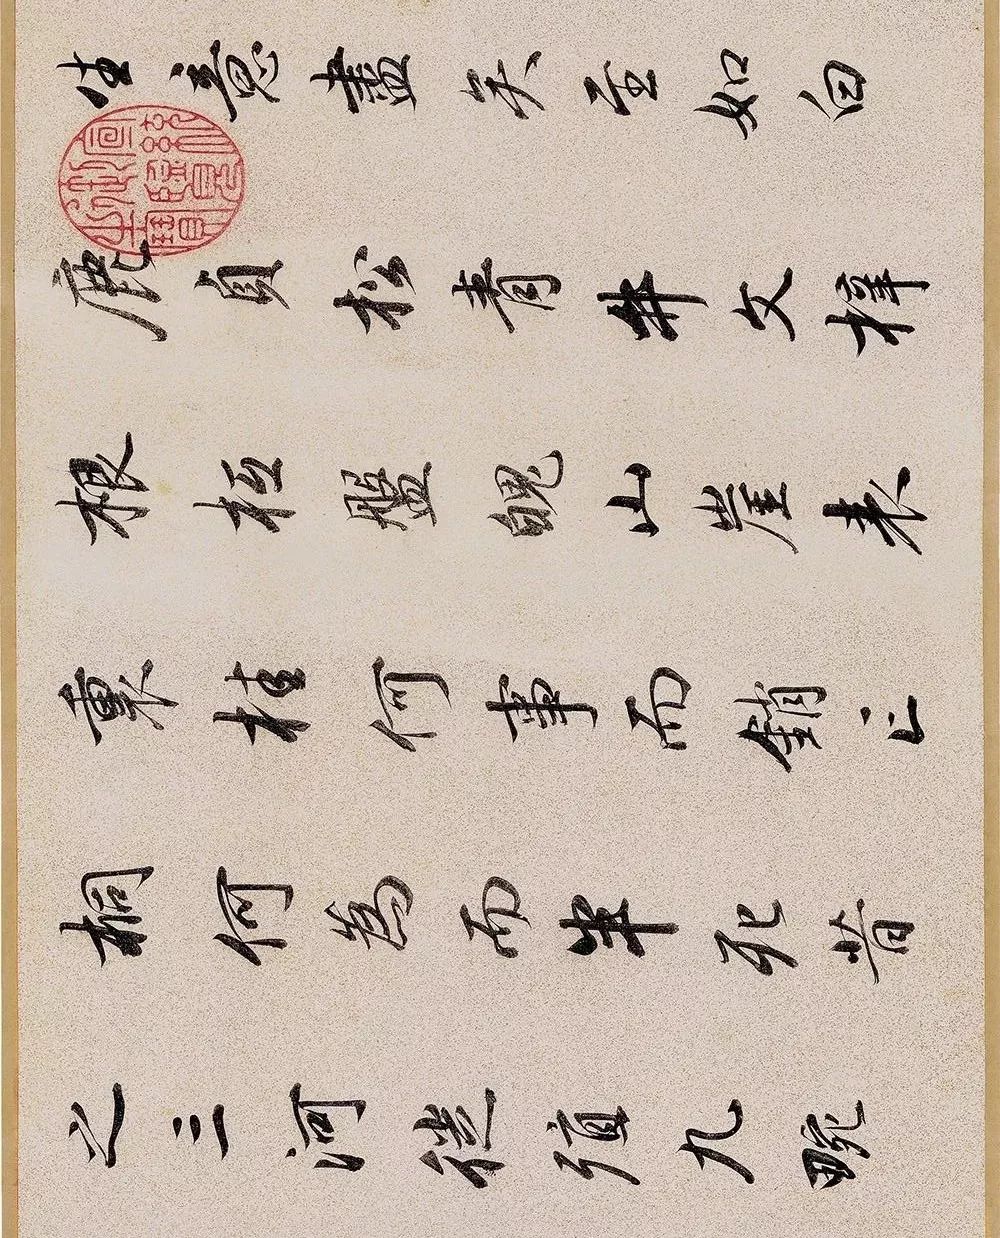 生意盡矣至如白
鹿貞松青牛文梓
根柢盤魄山崖表
裏桂何事而銷亡
桐何為而半死昔
之三河徙殖九畹